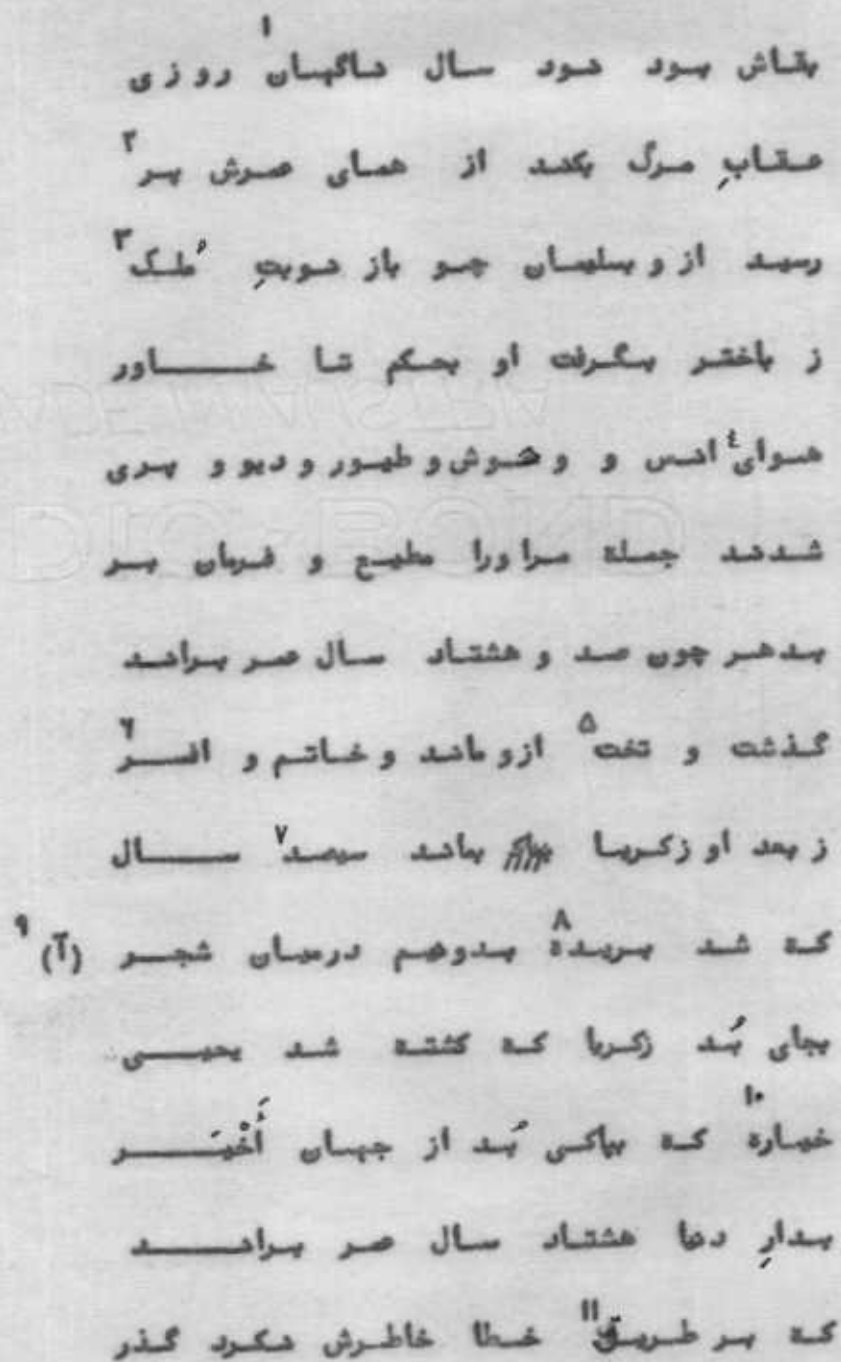 بقاش بود نود سال ناگهان۱ روزی
عقابِ مرگ بکند از همای عمرش پر۲
رسید ازو بسلیمان چو باز نوبتِ مُلک۳
ز باختر بگرفت او بحکم تا خاور
هوای۴ انس و وحوش و طیور و دیو و پری
شدند جمله مراورا مطیع و فرمان بر
بدهر چون صد و هشتاد سال عمر براند
گذشت و تخت۵ ازو ماند و خاتم و افسر۶
ز بعد او زکریا بماند سیصد۷ سال
که شد بریده۸ بدونیم درمیان شجر (آ)۹
بجای بُد زکریا که کشته شد یحیی
خیاره۱۰ که بپاکی بُد از جهان أَخْیَر
بدارِ دنیا هشتاد سال عمر براند
که بر طریق۱۱ خطا خاطرش نکرد گذر